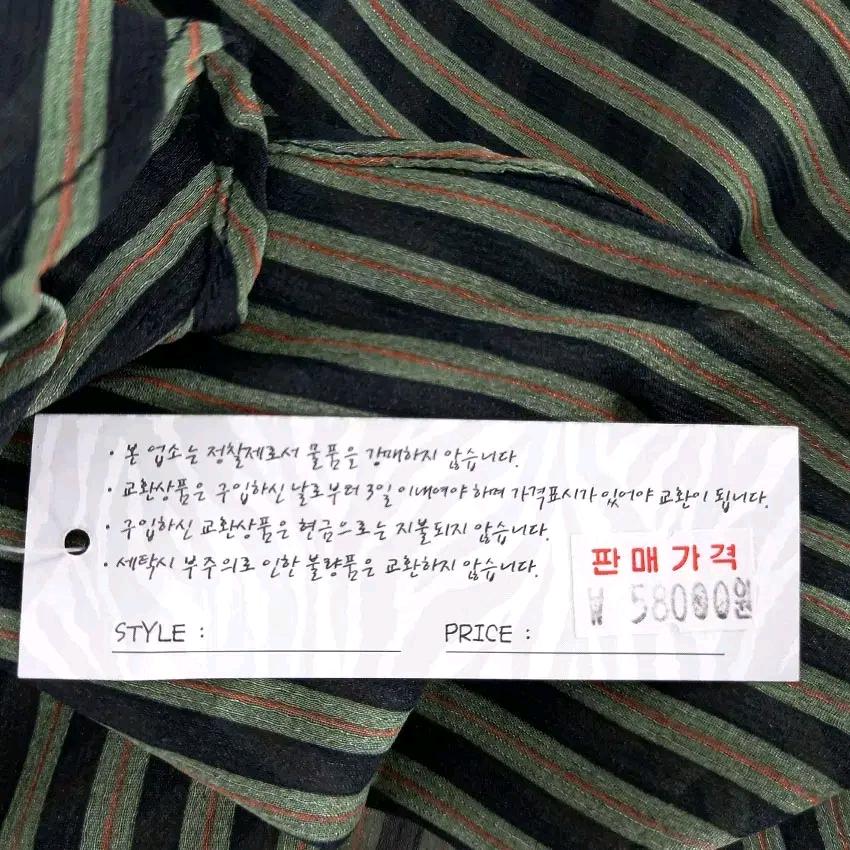 · 본 업소는 정찰제로서 물품을 강매하지 않습니다.
· 교환상품은 구입하신 날로부터 3일 이내여야 하며 가격표시가 있어야 교환이 됩니다.
· 구입하신 교환상품은 현금으로는 지불되지 않습니다.
· 세탁시 부주의로 인한 불량품은 교환하지 않습니다.
판매가격
₩ 58000원
STYLE :
PRICE :